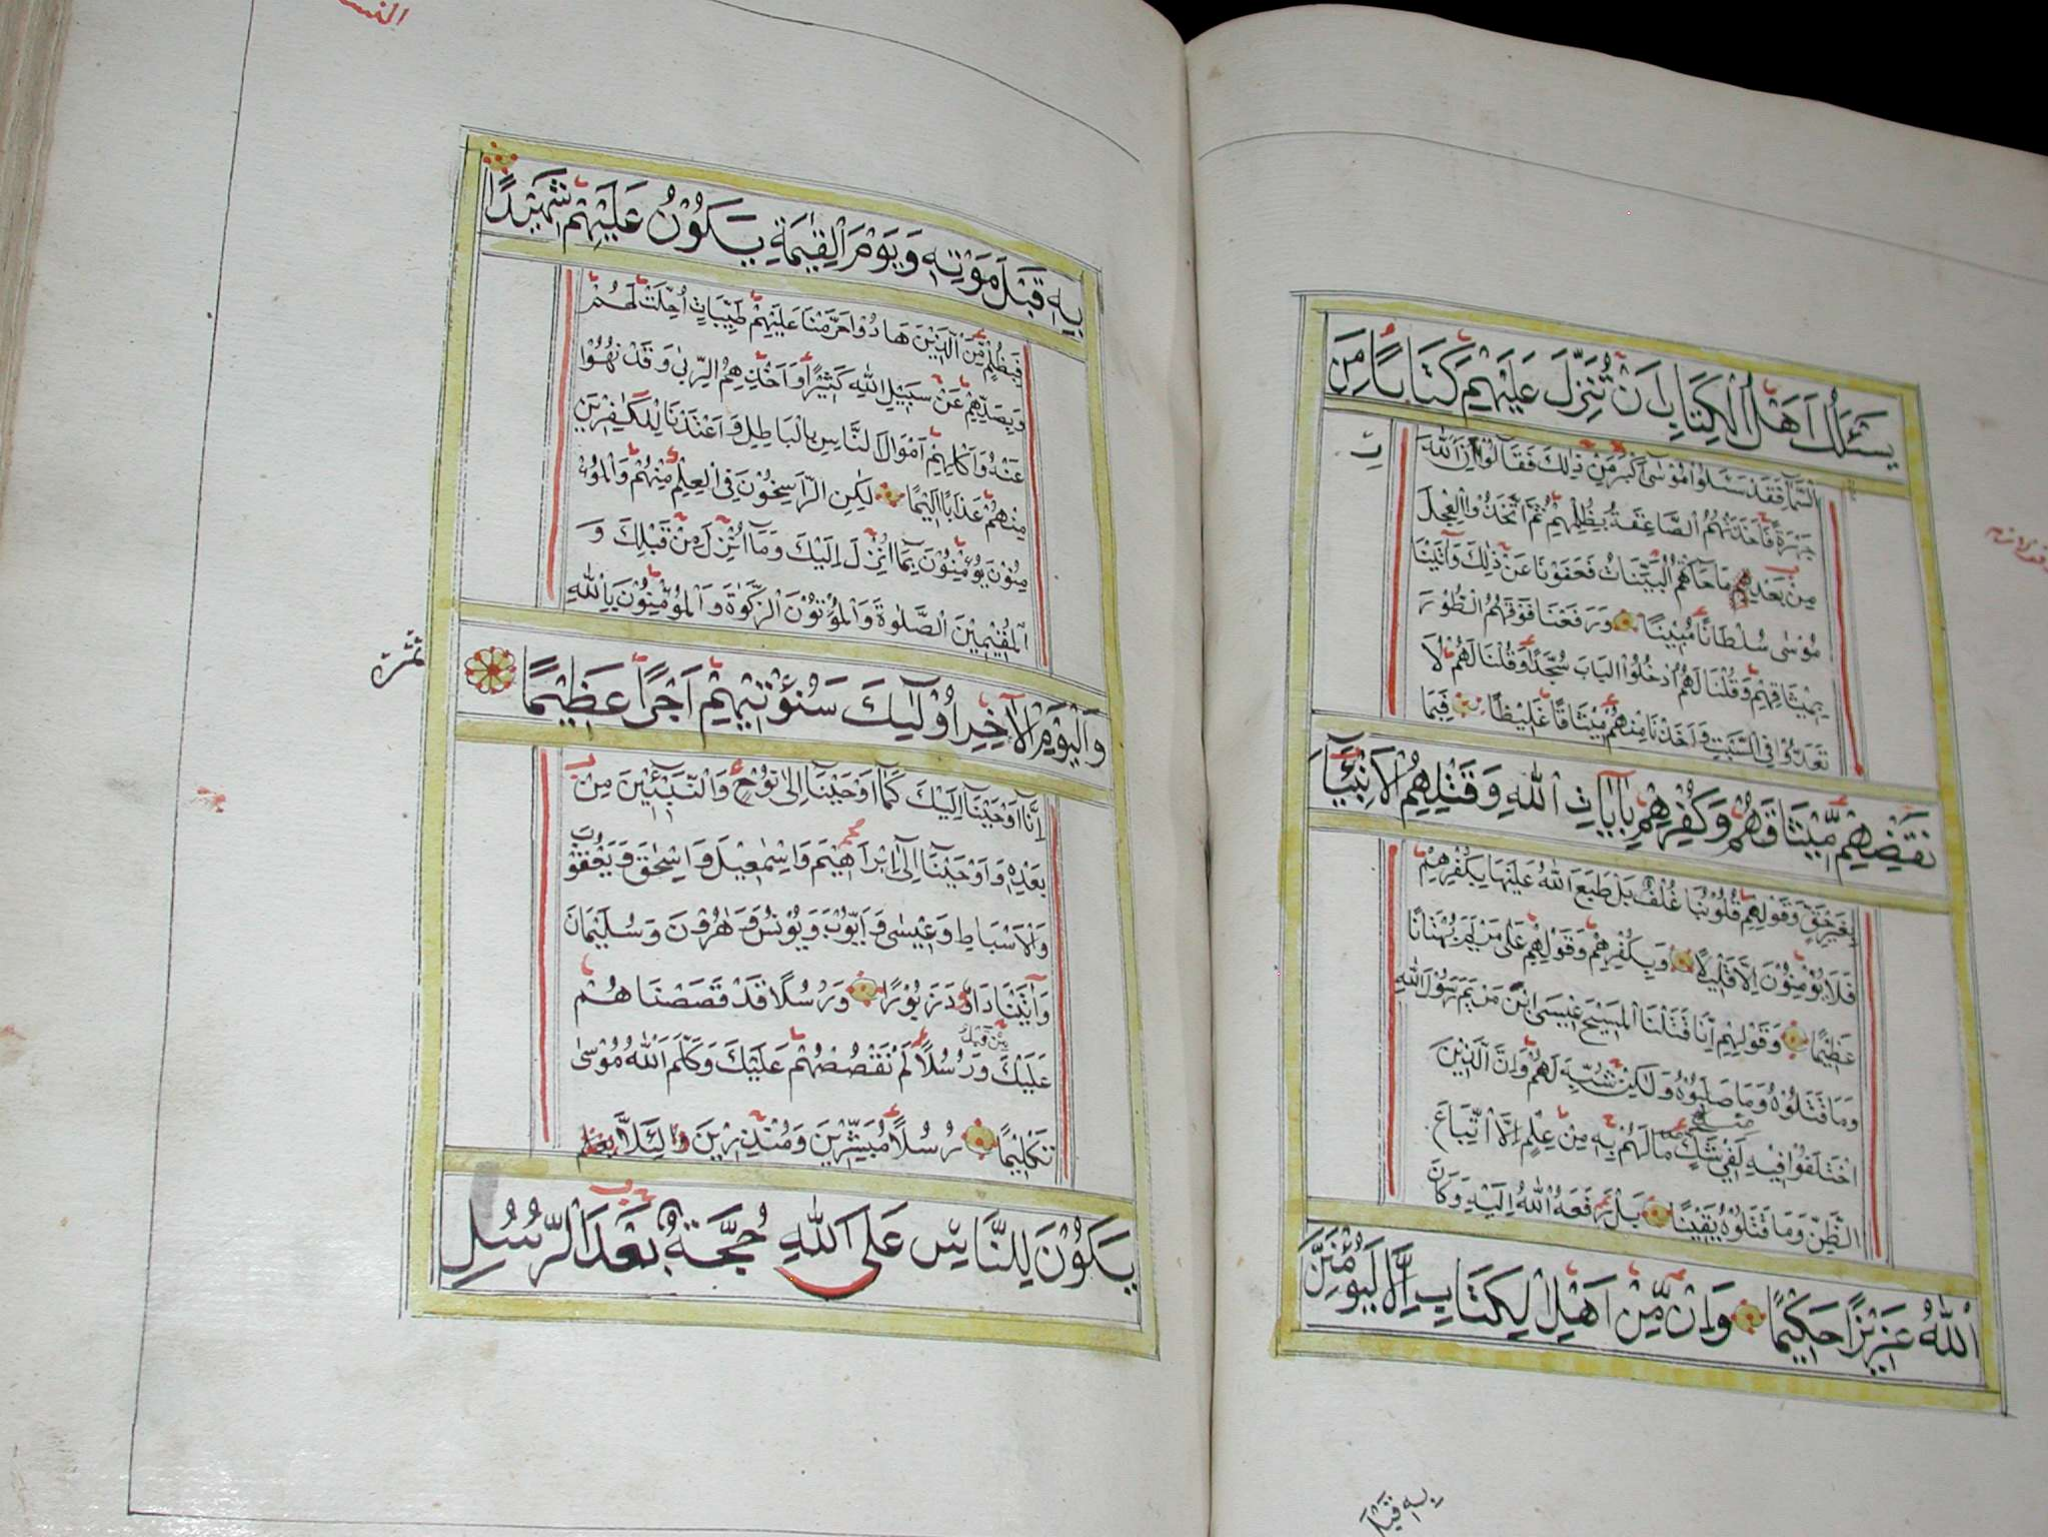 يَسْئَلُكَ اَهْلُ الْكِتَابِ اَنْ تُنَزِّلَ عَلَيْهِمْ كِتَابًا مِنَ
السَّمَآءِ فَقَدْ سَئَلُوا مُوْسٰى اَكْبَرَ مِنْ ذٰلِكَ فَقَالُوْا اَرِنَا اللهَ
جَهْرَةً فَاَخَذَتْهُمُ الصَّاعِقَةُ بِظُلْمِهِمْ ثُمَّ اتَّخَذُوا الْعِجْلَ
مِنْ بَعْدِ مَا جَآءَتْهُمُ الْبَيِّنَاتُ فَعَفَوْنَا عَنْ ذٰلِكَ وَآتَيْنَا
مُوْسٰى سُلْطَانًا مُبِيْنًا وَرَفَعْنَا فَوْقَهُمُ الطُّوْرَ
بِمِيْثَاقِهِمْ وَقُلْنَا لَهُمُ ادْخُلُوْا الْبَابَ سُجَّدًا وَقُلْنَا لَهُمْ لَا
تَعْدُوْا فِى السَّبْتِ وَاَخَذْنَا مِنْهُمْ مِيْثَاقًا غَلِيْظًا فَبِمَا
نَقْضِهِمْ مِيْثَاقَهُمْ وَكُفْرِهِمْ بِآيَاتِ اللهِ وَقَتْلِهِمُ الْاَنْبِيَآءَ
بِغَيْرِ حَقٍّ وَقَوْلِهِمْ قُلُوْبُنَا غُلْفٌ بَلْ طَبَعَ اللهُ عَلَيْهَا بِكُفْرِهِمْ
فَلَا يُؤْمِنُوْنَ اِلَّا قَلِيْلًا وَبِكُفْرِهِمْ وَقَوْلِهِمْ عَلٰى مَرْيَمَ بُهْتَانًا
عَظِيْمًا وَقَوْلِهِمْ اِنَّا قَتَلْنَا الْمَسِيْحَ عِيْسَى ابْنَ مَرْيَمَ رَسُوْلَ اللهِ
وَمَا قَتَلُوْهُ وَمَا صَلَبُوْهُ وَلٰكِنْ شُبِّهَ لَهُمْ وَاِنَّ الَّذِيْنَ
اخْتَلَفُوْا فِيْهِ لَفِىْ شَكٍّ مِنْهُ مَا لَهُمْ بِهِ مِنْ عِلْمٍ اِلَّا اتِّبَاعَ
الظَّنِّ وَمَا قَتَلُوْهُ يَقِيْنًا بَلْ رَفَعَهُ اللهُ اِلَيْهِ وَكَانَ
اللهُ عَزِيْزًا حَكِيْمًا وَاِنْ مِّنْ اَهْلِ الْكِتَابِ اِلَّا لَيُؤْمِنَنَّ
بِهِ قَبْلَ
بِهِ قَبْلَ مَوْتِهِ وَيَوْمَ الْقِيٰمَةِ يَكُوْنُ عَلَيْهِمْ شَهِيْدًا
فَبِظُلْمٍ مِّنَ الَّذِيْنَ هَادُوْا حَرَّمْنَا عَلَيْهِمْ طَيِّبَاتٍ اُحِلَّتْ لَهُمْ
وَبِصَدِّهِمْ عَنْ سَبِيْلِ اللهِ كَثِيْرًا وَاَخْذِهِمُ الرِّبٰى وَقَدْ نُهُوْا
عَنْهُ وَاَكْلِهِمْ اَمْوَالَ النَّاسِ بِالْبَاطِلِ وَاَعْتَدْنَا لِلْكٰفِرِيْنَ
مِنْهُمْ عَذَابًا اَلِيْمًا لٰكِنِ الرَّاسِخُوْنَ فِى الْعِلْمِ مِنْهُمْ وَالْمُؤْ
مِنُوْنَ يُؤْمِنُوْنَ بِمَآ اُنْزِلَ اِلَيْكَ وَمَآ اُنْزِلَ مِنْ قَبْلِكَ وَ
الْمُقِيْمِيْنَ الصَّلٰوةَ وَالْمُؤْتُوْنَ الزَّكٰوةَ وَالْمُؤْمِنُوْنَ بِاللهِ
وَالْيَوْمِ الْآخِرِ اُولٰٓئِكَ سَنُؤْتِيْهِمْ اَجْرًا عَظِيْمًا
اِنَّآ اَوْحَيْنَآ اِلَيْكَ كَمَآ اَوْحَيْنَآ اِلٰى نُوْحٍ وَالنَّبِيّٖنَ مِنْ
بَعْدِهِ وَاَوْحَيْنَآ اِلٰٓى اِبْرَاهِيْمَ وَاِسْمٰعِيْلَ وَاِسْحٰقَ وَيَعْقُوْبَ
وَالْاَسْبَاطِ وَعِيْسٰى وَاَيُّوْبَ وَيُوْنُسَ وَهٰرُوْنَ وَسُلَيْمَانَ
وَآتَيْنَا دَاوٗدَ زَبُوْرًا وَرُسُلًا قَدْ قَصَصْنَاهُمْ
عَلَيْكَ مِنْ قَبْلُ وَرُسُلًا لَمْ نَقْصُصْهُمْ عَلَيْكَ وَكَلَّمَ اللهُ مُوْسٰى
تَكْلِيْمًا رُسُلًا مُبَشِّرِيْنَ وَمُنْذِرِيْنَ لِئَلَّا
يَكُوْنَ لِلنَّاسِ عَلَى اللهِ حُجَّةٌ بَعْدَ الرُّسُلِ